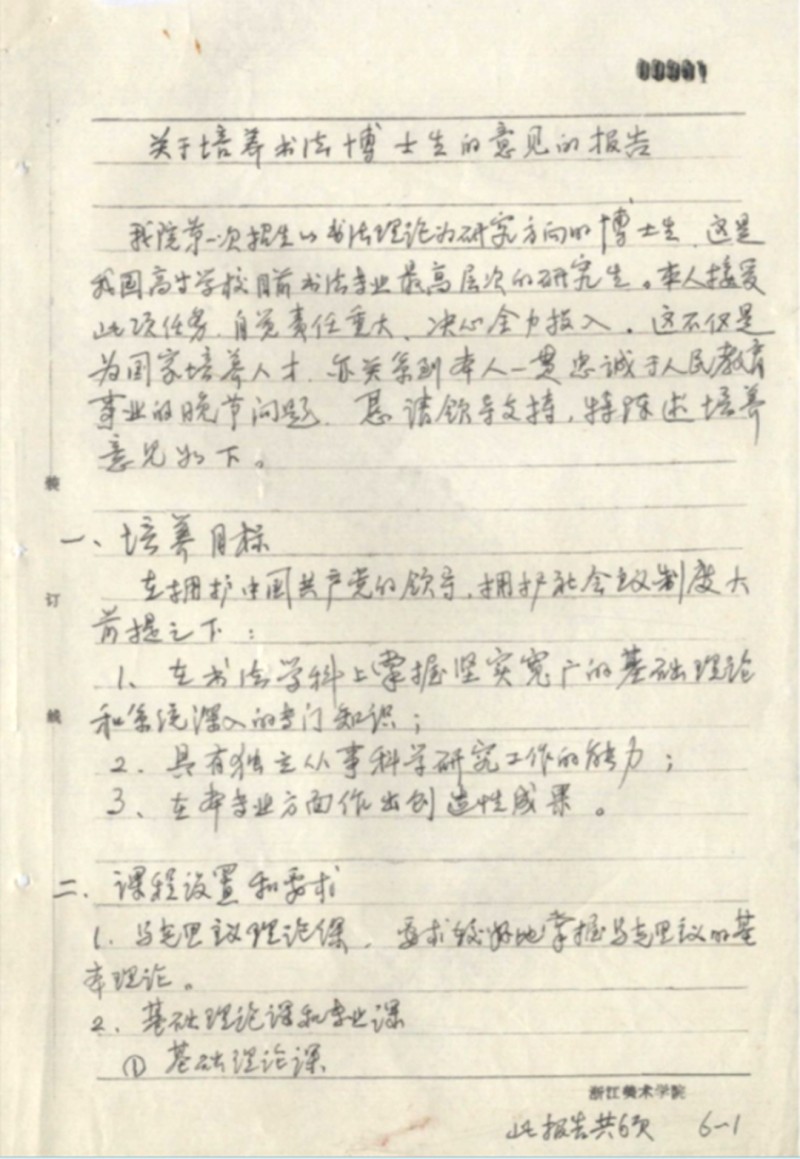 关于培养书法博士生的意见的报告
我院第一次招生以书法理论为研究方向的博士生，这是
我国高等学校目前书法专业最高层次的研究生。本人接受
此项任务，自觉责任重大，决心全力投入。这不仅是
为国家培养人才，亦关系到本人一贯忠诚于人民教育
事业的晚节问题，恳请领导支持，特陈述培养
意见如下。
一、培养目标
在拥护中国共产党的领导，拥护社会主义制度大
前提之下：
1、在书法学科上掌握坚实宽广的基础理论
和系统深入的专门知识；
2、具有独立从事科学研究工作的能力；
3、在本专业方面作出创造性成果。
二、课程设置和要求
1、马克思主义理论课，要求较好地掌握马克思主义的基
本理论。
2、基础理论课和专业课
① 基础理论课
装
订
线
浙江美术学院
此报告共6页 6-1